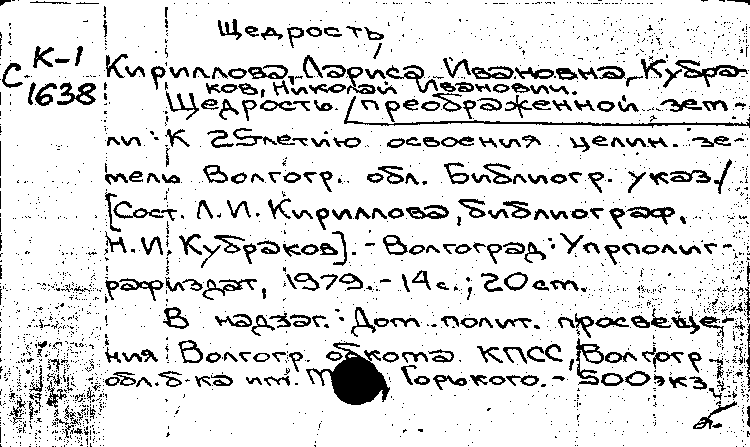 Щедрость
К-1
С
1638
Кириллова, Лариса Ивановна, Кубра-
ков, Николай Иванович.
Щедрость преображенной зем-
ли: К 25летию освоения целин. зе-
мель Волгогр. обл. Библиогр. указ./
[Сост. Л.И. Кириллова, библиограф,
Н.И. Кубраков]. - Волгоград: Упрполиг-
рафиздат, 1979. - 14 с.; 20 см.
В надзаг.: Дом полит. просвеще-
ния Волгогр. обкома КПСС, Волгогр.
обл. б-ка им. М. Горького. - 500 экз.